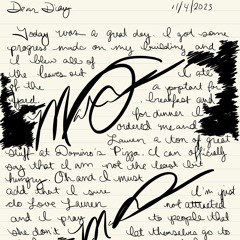 Dear Diary 11/4/2023
Today was a great day. I got some
progress made on my building and
I blew all of
the leaves out I ate
of the a poptart for
yard. breakfast and
for dinner I
ordered me and
Lauren a ton of great
stuff at Domino's Pizza. I can officially
say that I am not the least bit
hungry. Oh and I must
add that I sure I'm just
do love Lauren not attracted
and I pray to people that
she don't let themselves go to